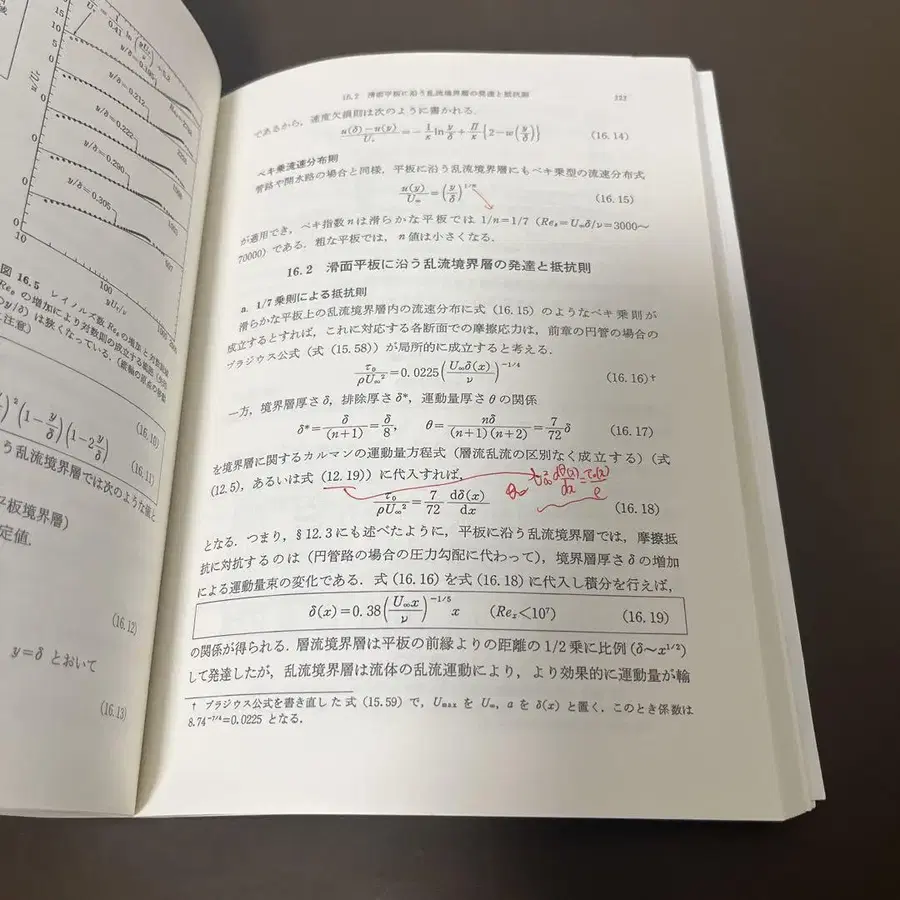 15
10
5
0
0
10
100
1000
y/δ=0.212
y/δ=0.222
y/δ=0.290
y/δ=0.305
yUτ/ν
図 16.5 レイノルズ数
の増加により対数則の成立する範囲
は狭くなっている.
(1-y/δ)(1-2y/δ)
(16.10)
(16.11)
う乱流境界層では次のような値と
平板境界層)
定値.
(16.12)
y=δ とおいて
(16.13)
16.2 滑面平板に沿う乱流境界層の発達と抵抗則
であるから,速度欠損則は次のように書かれる.
(u(δ)-u(y))/Uτ=-1/κ ln y/δ+Π/κ{2-w(y/δ)} (16.14)
ベキ乗流速分布則
管路や開水路の場合と同様,平板に沿う乱流境界層にもベキ乗型の流速分布式
u(y)/U∞=(y/δ)^{1/n} (16.15)
が適用でき,ベキ指数 n は滑らかな平板では 1/n=1/7 (Reδ=U∞δ/ν=3000~
70000) である.粗な平板では,n 値は小さくなる.
16.2 滑面平板に沿う乱流境界層の発達と抵抗則
a. 1/7乗則による抵抗則
滑らかな平板上の乱流境界層内の流速分布に式 (16.15) のようなベキ乗則が
成立するとすれば,これに対応する各断面での摩擦応力は,前章の円管の場合の
ブラジウス公式(式 (15.58)) が局所的に成立すると考える.
τ₀/ρU∞²=0.0225(U∞δ(x)/ν)^{-1/4} (16.16)†
一方,境界層厚さ δ,排除厚さ δ*,運動量厚さ θ の関係
δ*=δ/(n+1)=δ/8, θ=nδ/((n+1)(n+2))=7/72 δ (16.17)
を境界層に関するカルマンの運動量方程式(層流乱流の区別なく成立する)(式
(12.5),あるいは式 (12.19)) に代入すれば,
τ₀/ρU∞²=7/72 dδ(x)/dx (16.18)
となる.つまり,§12.3にも述べたように,平板に沿う乱流境界層では,摩擦抵
抗に対抗するのは(円管路の場合の圧力勾配に代わって),境界層厚さ δ の増加
による運動量束の変化である.式 (16.16) を式 (16.18) に代入し積分を行えば,
δ(x)=0.38(U∞x/ν)^{-1/5}x (Reₓ<10⁷) (16.19)
の関係が得られる.層流境界層は平板の前縁よりの距離の 1/2 乗に比例 (δ~x^{1/2})
して発達したが,乱流境界層は流体の乱流運動により,より効果的に運動量が輸
† ブラジウス公式を書き直した式 (15.59) で,Umax を U∞,a を δ(x) と置く.このとき係数は
8.74^{-7/4}=0.0225 となる.